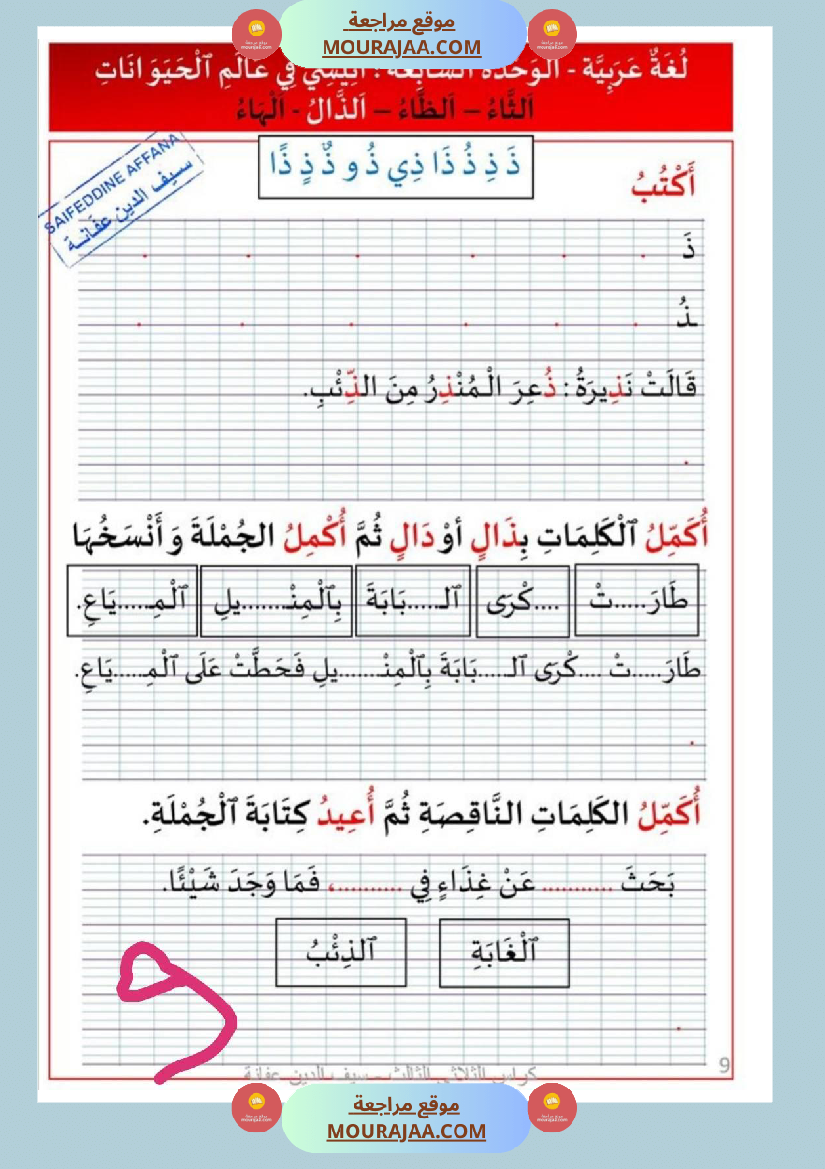 موقع مراجعة
MOURAJAA.COM
لُغَةٌ عَرَبِيَّة - الوَحْدَة السَّابِعَة : أَنِيسِي فِي عَالَمِ ٱلْحَيَوَانَاتِ
اَلثَّاءُ – اَلظَّاءُ – اَلذَّالُ - اَلْهَاءُ
SAIFEDDINE AFFANA
سيف الدين عفانة
ذَ ذِ ذُ ذَا ذِي ذُو ذٌ ذٍ ذًا
أَكْتُبُ
ذَ
ـذُ
قَالَتْ نَذِيرَةُ : ذُعِرَ الْمُنْذِرُ مِنَ الذِّئْبِ.
أُكَمِّلُ ٱلْكَلِمَاتِ بِذَالٍ أوْ دَالٍ ثُمَّ أُكْمِلُ الجُمْلَةَ وَ أَنْسَخُهَا
طَارَ.....تْ ....كْرَى ٱلـ.....بَابَةَ بِٱلْمِنْـ.......يلِ ٱلْمِـ.....يَاعِ.
طَارَ.....تْ ....كْرَى ٱلـ.....بَابَةَ بِٱلْمِنْـ.......يلِ فَحَطَّتْ عَلَى ٱلْمِـ.....يَاعِ.
أُكَمِّلُ الكَلِمَاتِ النَّاقِصَةِ ثُمَّ أُعِيدُ كِتَابَةَ ٱلْجُمْلَةِ.
بَحَثَ .......... عَنْ غِذَاءٍ فِي ..........، فَمَا وَجَدَ شَيْئًا.
ٱلْغَابَةِ ٱلذِئْبُ
9
كراس الثلاثي الثالث – سيف الدين عفانة
موقع مراجعة
MOURAJAA.COM